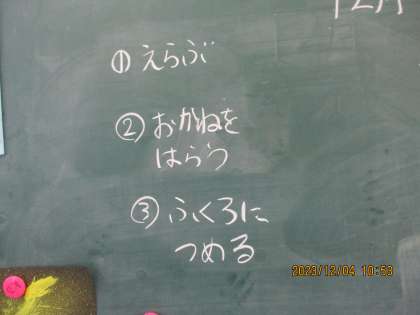 12月
① えらぶ
② おかねを
はらう
③ ふくろに
つめる
2023/12/04 10:53